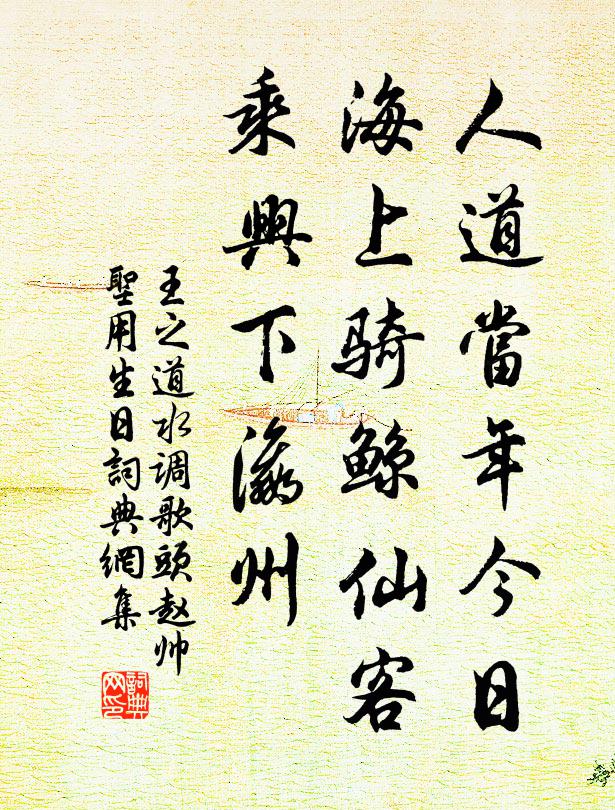 人道當年今日
海上骑鲸仙客
乘興下瀛州
王之道水调歌頭赵帅
聖用生日詞典網集
詞典
网印